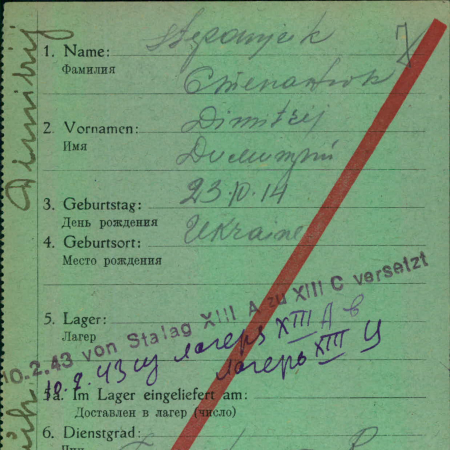 1. Name: Stepanjek
Фамилия
Степанюк
2. Vornamen: Dimitrij
Имя
Дмитрий
3. Geburtstag: 23.10.14
День рождения
4. Geburtsort: Ukraine
Место рождения
5. Lager:
Лагер
10.2.43 von Stalag XIII A zu XIII C versetzt
10.2.43 из лагеря XIII А в
лагерь XIII Ц
5a. Im Lager eingeliefert am:
Доставлен в лагер (число)
6. Dienstgrad:
Чин
Dimitrij